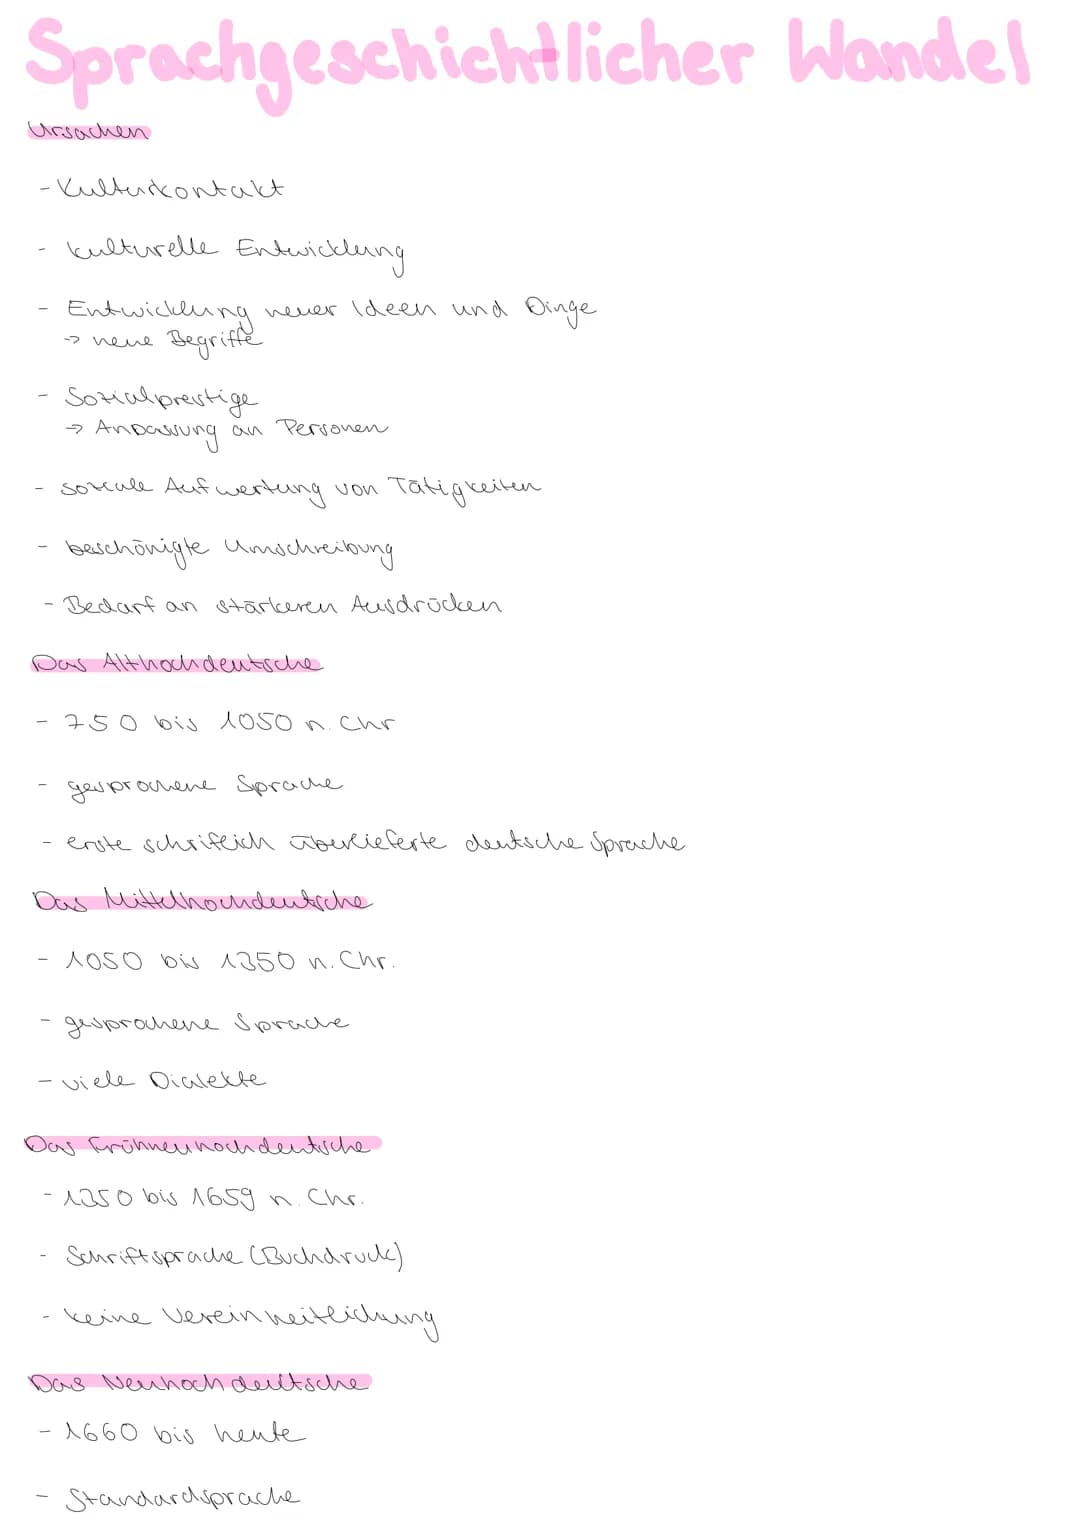 Sprachgeschichtlicher Wandel
Ursachen
- Kulturkontakt
- kulturelle Entwicklung
- Entwicklung neuer Ideen und Dinge
→ neue Begriffe
- Sozialprestige
→ Anpassung an Personen
- soziale Aufwertung von Tätigkeiten
- beschönigte Umschreibung
- Bedarf an stärkeren Ausdrücken
Das Althochdeutsche
- 750 bis 1050 n. Chr
- gesprochene Sprache
- erste schriftlich überlieferte deutsche Sprache
Das Mittelhochdeutsche
- 1050 bis 1350 n. Chr.
- gesprochene Sprache
- viele Dialekte
Das Frühneuhochdeutsche
- 1350 bis 1659 n. Chr.
- Schriftsprache (Buchdruck)
- keine Vereinheitlichung
Das Neuhochdeutsche
- 1660 bis heute
- Standardsprache